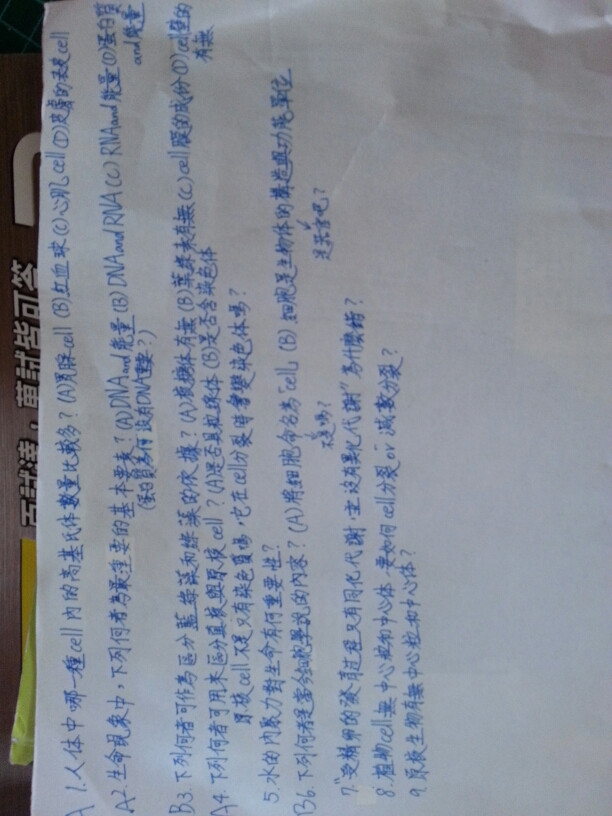 A 1.人体中哪一種cell內的高基氏体數量比較多？(A)胃腺cell (B)紅血球(C)心肌cell(D)皮膚的表皮cell
A2.生命現象中，下列何者為最重要的基本要素？(A)DNA and能量(B)DNA and RNA(C) RNA and能量(D)蛋白質and能量
(蛋白質為何沒有DNA重要？)
B3.下列何者可作為區分藍綠藻和綠藻的依據？(A)核糖体有無(B)葉綠素有無(C)cell膜的成份(D)cell壁的有無
A4.下列何者可用來區分真核與原核cell？(A)是否具粒線体(B)是否含染色体
原核cell不是只有染色質嗎，它在cell分裂時會變染色体嗎？
5.水的內聚力對生命有何重要性？
B6.下列何者是當今細胞學說的內容？(A)將細胞命名為"cell" (B)細胞是生物体的構造與功能單位
不是嗎？
是虎克吧？
7."受精卵的發育過程只有同化代謝，並沒有異化代謝"為什麼錯？
8.植物cell無中心粒和中心体，要如何cell分裂or減數分裂？
9.原核生物有無中心粒和中心体？
萬試皆可答